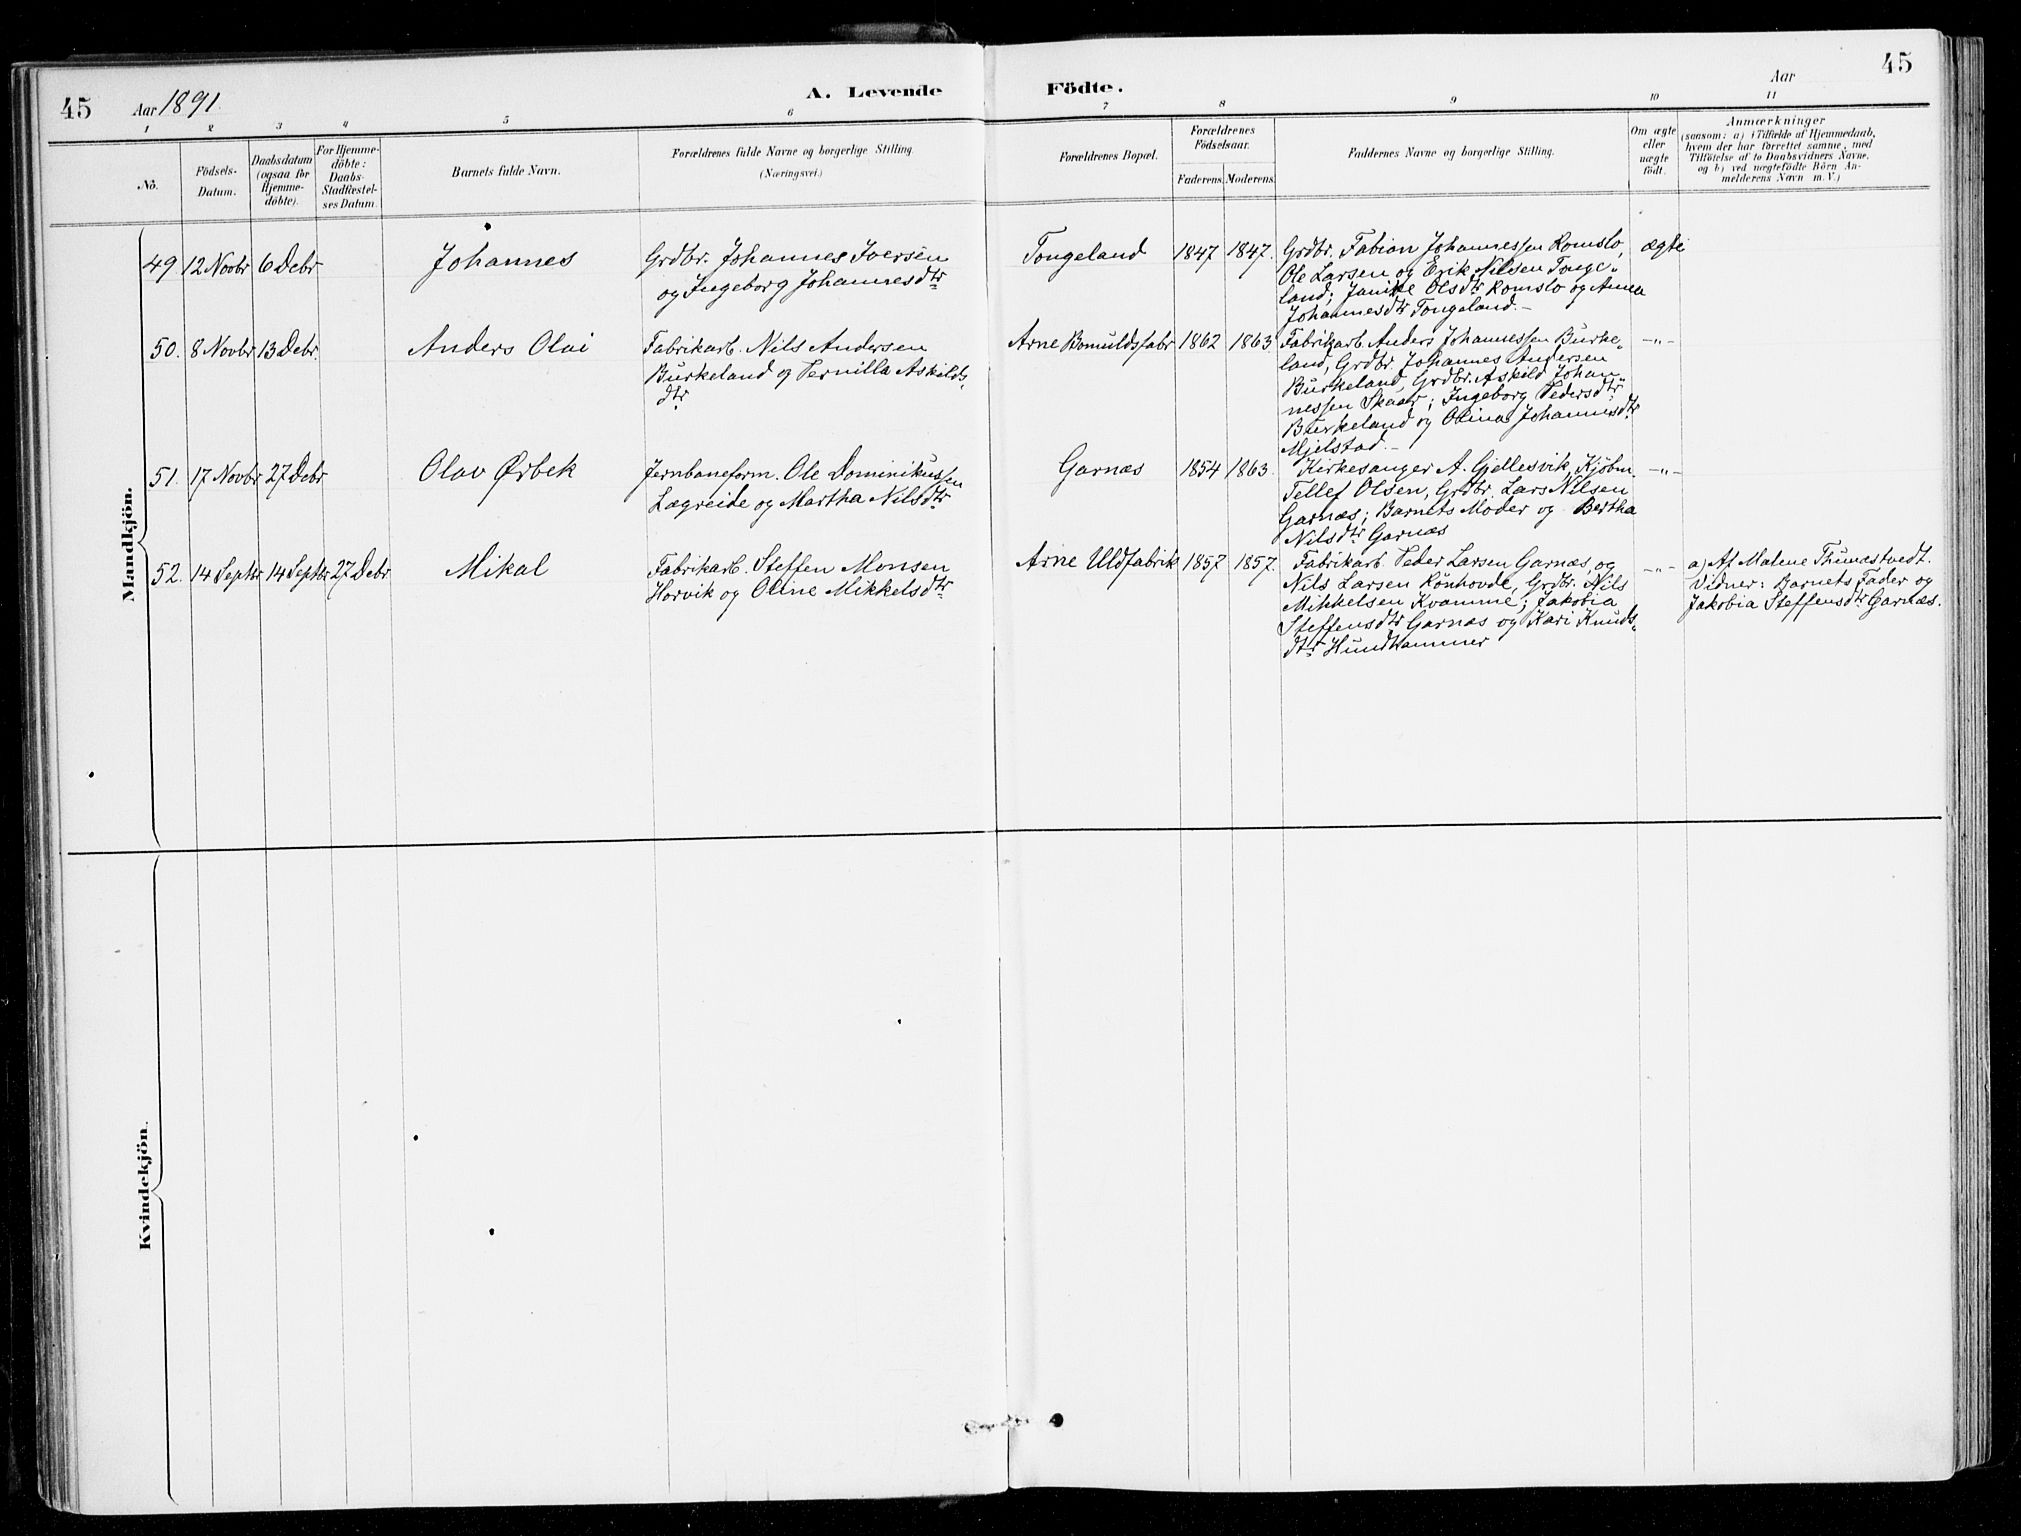 45
Aar 1891.
A. Levende
Födte.
Aar
45
1
2
3
4
5
6
7
8
9
10
11
No.
Födsels-
Datum.
Daabsdatum
(ogsaa for
Hjemme-
döbte).
For Hjemme-
döbte:
Daabs-
Stadfæstel-
ses Datum.
Barnets fulde Navn.
Forældrenes fulde Navne og borgerlige Stilling
(Næringsvei.)
Forældrenes Bopæl.
Forældrenes
Födselsaar.
Faderens.
Moderens.
Faddernes Navne og borgerlige Stilling.
Om ægte
eller
uægte
födt.
Anmærkninger
(saasom: a) i Tilfælde af Hjemmedaab,
hvem der har forrettet samme, med
Tilföielse af to Daabsvidners Navne,
og b) ved uægtefödte Börn An-
melderens Navn m. V.)
Mandkjön.
49
12 Novbr
6 Debr
Johannes
Grdbr. Johannes Iversen
og Ingeborg Johannesdtr
Tongeland
1847
1847.
Grdbr. Fabian Johannessen Romslo,
Ole Larsen og Erik Nilsen Tonge-
land; Janikke Olsdtr Romslo og Anna
Johannesdtr Tongeland.–
ægte
50.
8 Novbr
13 Debr.
Anders Olai
Fabrikarb. Nils Andersen
Burkeland og Pernilla Askilds-
dtr
Arne Bomuldsfabr
1862
1863.
Fabrikarb. Anders Johannessen Burke-
land, Grdbr. Johannes Andersen
Burkeland, Grdbr. Askild Johan-
nessen Skaar; Ingeborg Pedersdtr
Burkeland og Olina Johannesdtr
Mjelstad.–
–"–
51.
17 Novbr
27 Debr
Olav Ørbek
Jernbaneform. Ole Dominikussen
Lægreide og Martha Nilsdtr
Garnæs
1854
1863.
Kirkesanger A. Gjellesvik, Kjøbm.
Tellef Olsen, Grdbr. Lars Nilsen
Garnæs; Barnets Moder og Bertha
Nilsdtr Garnæs
–"–
52.
14 Septbr
14 Septbr
27 Debr
Mikal
Fabrikarb. Steffen Monsen
Horvik og Oline Mikkelsdtr
Arne Uldfabrik
1857
1857.
Fabrikarb. Peder Larsen Garnæs, og
Nils Larsen Rönhovde, Grdbr. Nils
Mikkelsen Kvamme; Jakobia
Steffensdtr Garnæs og Kari Knuds-
dtr Hundhammer
–"–
a) Af Malene Thunestvedt.
Vidner: Barnets Fader og
Jakobia Steffensdtr Garnæs.
Kvindekjön.